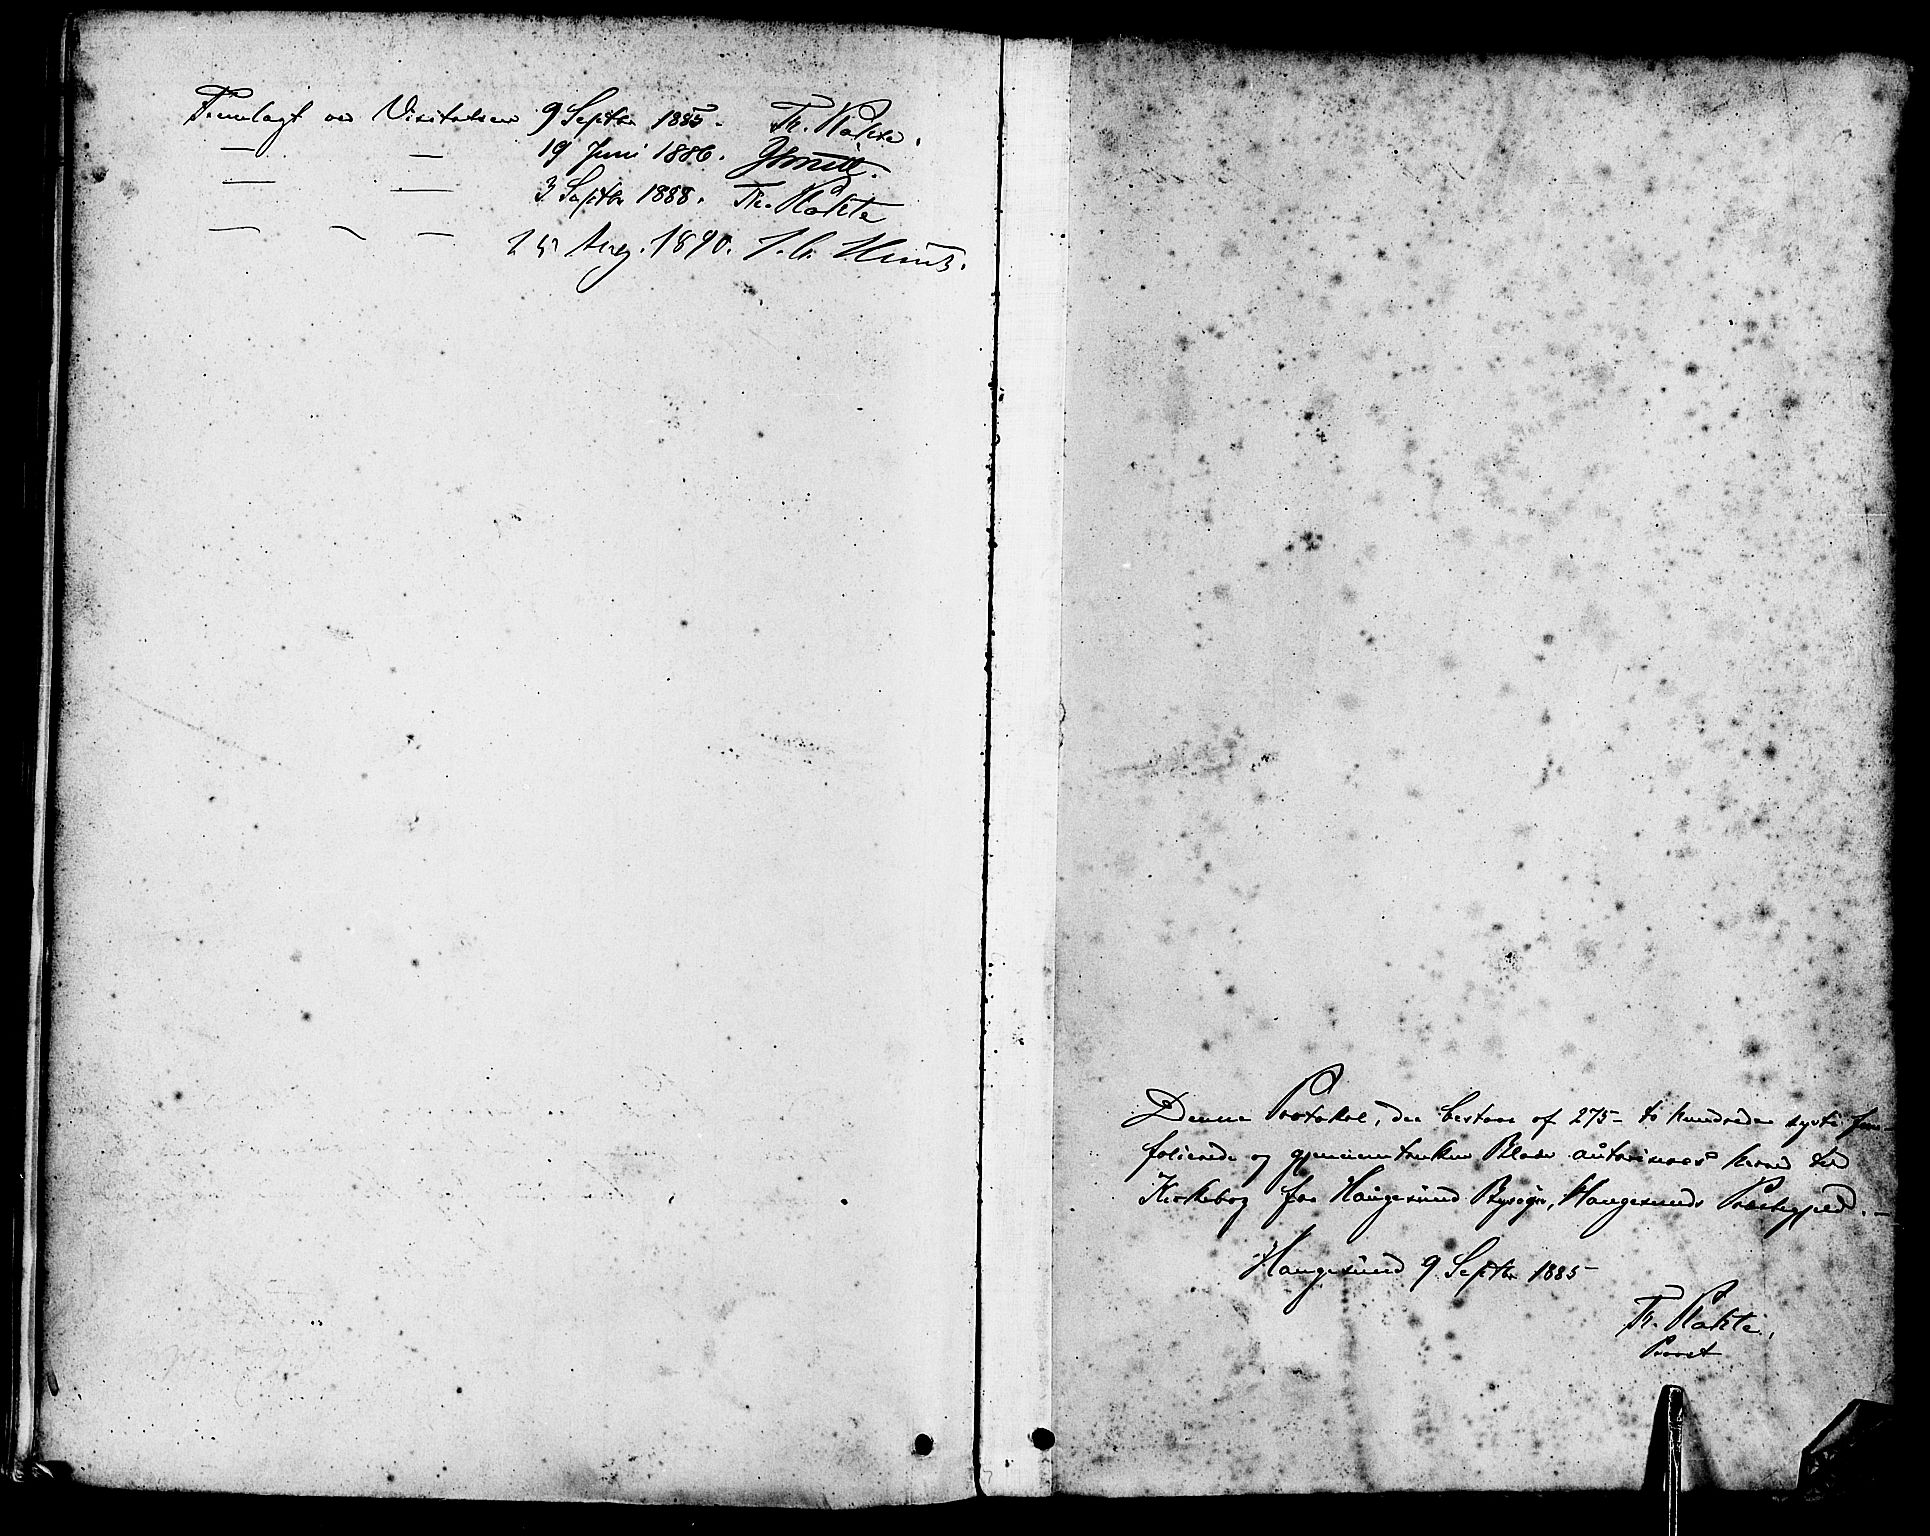 Fremlagt ved Visitatsen 9 Septbr 1885. Th. Kahrs.
— — 19 Juni 1886. JSmitt.
— — 3 Septbr 1888.
— — — 25 Aug. 1890.
Denne Protokol, der bestaar af 275 - to hundrede sytti fem -
folierede og gjennemtrukne Blade autoriseres herved til
Kirkebog for Haugesund Bysogn, Haugesunds Præstegjeld. -
Haugesund 9 Septbr 1885
Provst